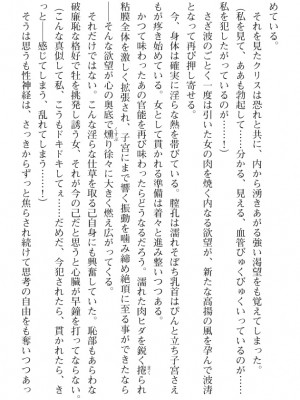 めている。
それを見たクリスは恐れと共に、内から湧きあがる強い渇望をも覚えてしまった。
（私を見て、ああも勃起して……分かる、見える、血管びくびくいっているのが……
私を犯したがっているのが……っ！）
さざ波のごとく、一度は引いた女の肉を焼く内なる欲望が、新たな高揚の風を孕んで波濤
となって再び押し寄せる。
今、身体は確実に淫らな熱を帯びている。膣孔は濡れそぼち乳首はぴんと立ち子宮さえ
もが疼き始めている。女として、貫かれる準備は着々と進み整いつつある。
かつて味わったあの官能を再び味わったらどうなるだろう。濡れた肉ヒダを鋭く捲られ
粘膜全体を激しく拡張され、子宮にまで響く振動を噛み締め絶頂に至る事ができたなら
――そんな欲望が心の奥底で燻り徐々に大きく燃え広がってくる。
それだけではない。こんな淫らな仕草を取る己自身にも興奮していた。恥部もあらわな
破廉恥な格好で牡を挑発し誘う女、それが今の己だと思うと心臓が早鐘を打ってならない。
（こんな真似して私、こうもドキドキしてる……だめだ、今犯されたら、貫かれたら、き
っと……感じてしまう、乱れてしまう……！）
そうは思うも性神経は、さっきからずっと焦らされ続けて思考の自由をも奪いつつあっ